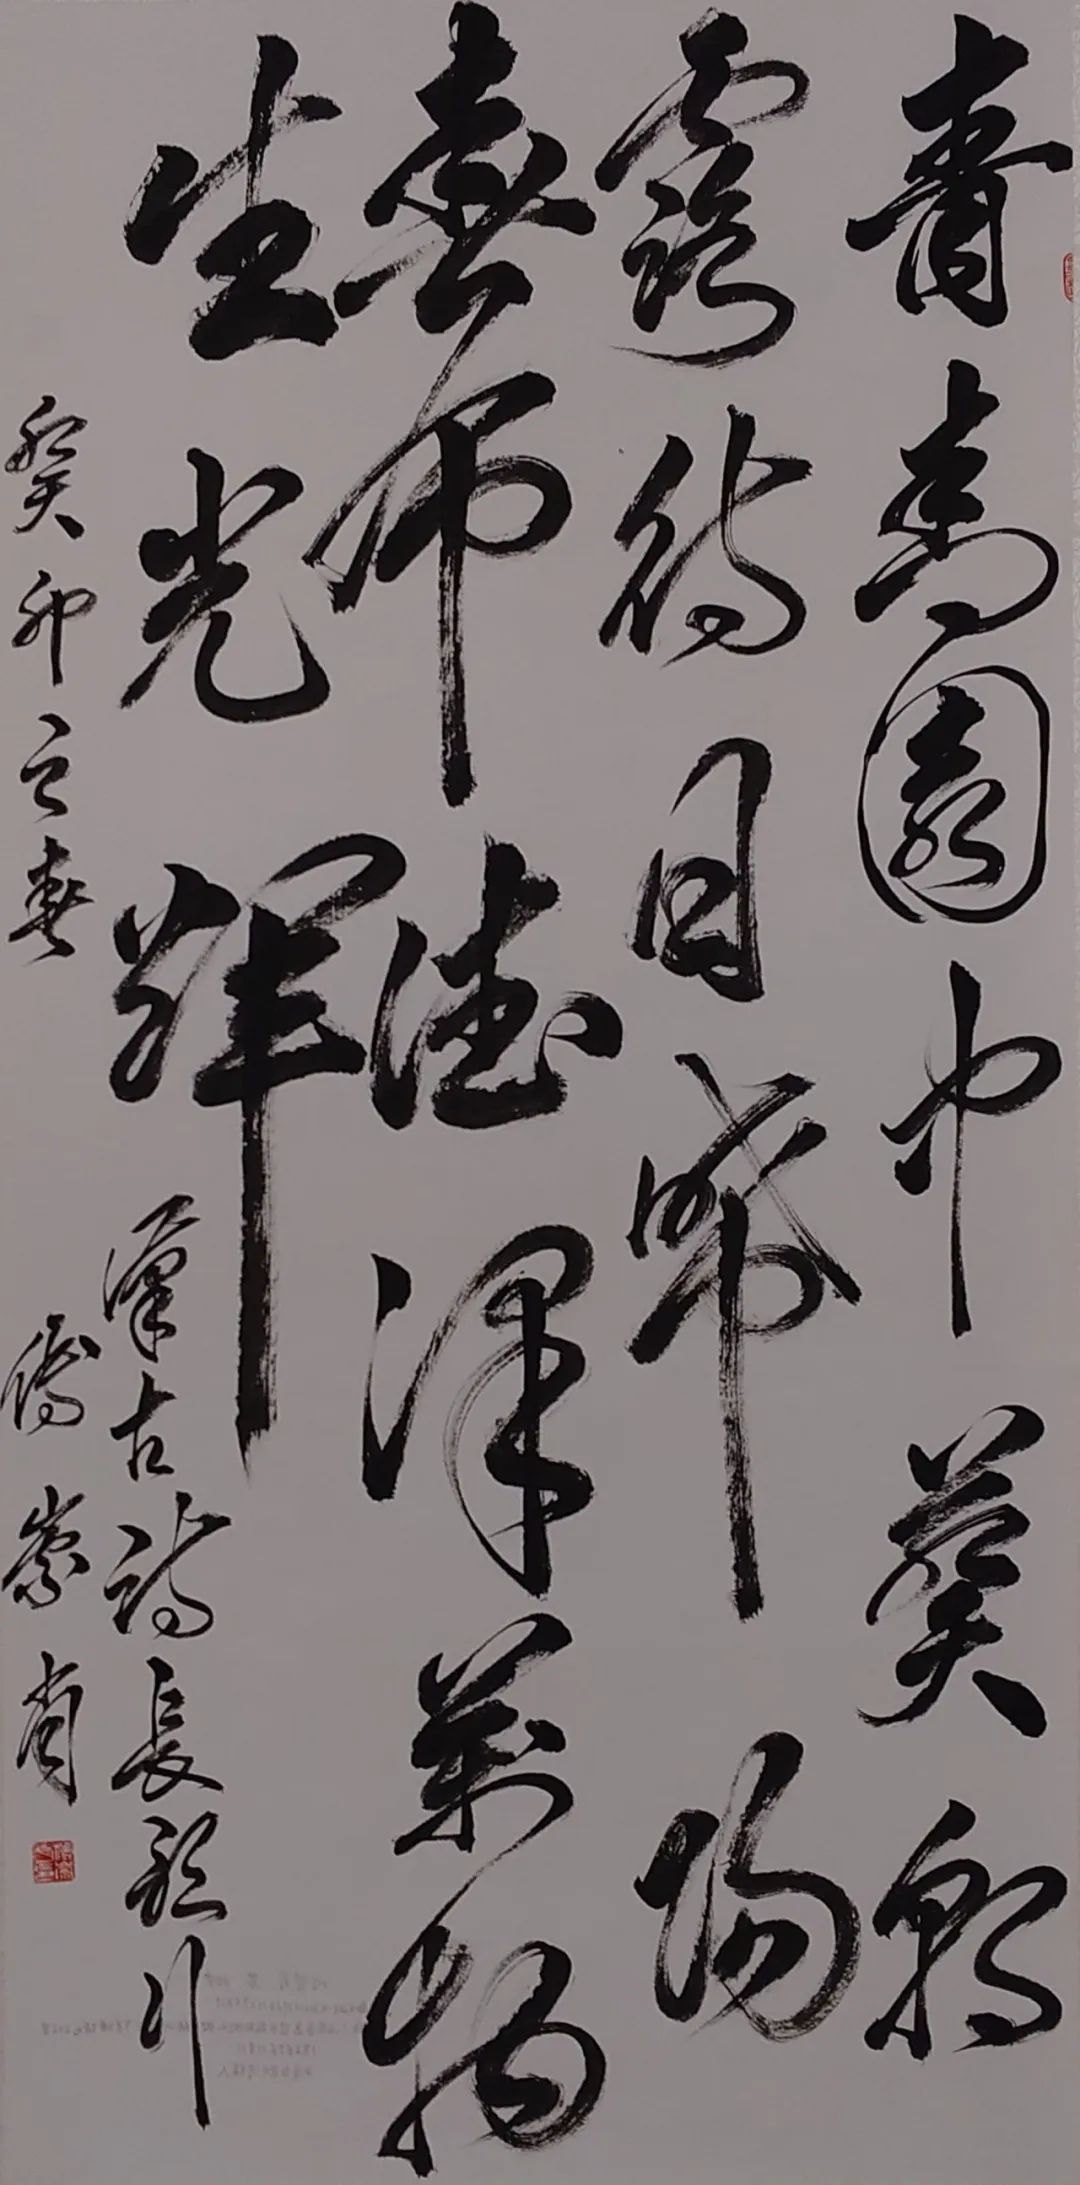 青青園中葵朝
露待日晞陽
春布德澤萬物
生光輝
漢古詩長歌行
癸卯之春